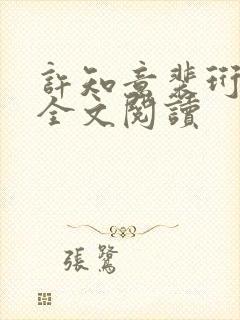 許知意裴珩
全文閱讀
張鷺